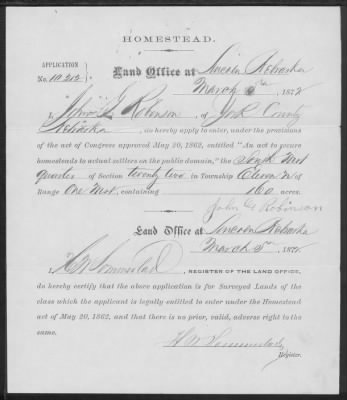 HOMESTEAD.
APPLICATION
No. 10,212
Land Office at Lincoln Nebraska
March 5th 1872
I, John G Robinson, of York County
Nebraska, do hereby apply to enter, under the provisions
of the act of Congress approved May 20, 1862, entitled "An act to secure
homesteads to actual settlers on the public domain," the South West
quarter of Section twenty two in Township Eleven N of
Range One West, containing 160 acres.
John G Robinson
Land Office at Lincoln Nebraska
March 5th 1872
I, REGISTER OF THE LAND OFFICE,
do hereby certify that the above application is for Surveyed Lands of the
class which the applicant is legally entitled to enter under the Homestead
act of May 20, 1862, and that there is no prior, valid, adverse right to the
same.
Register.